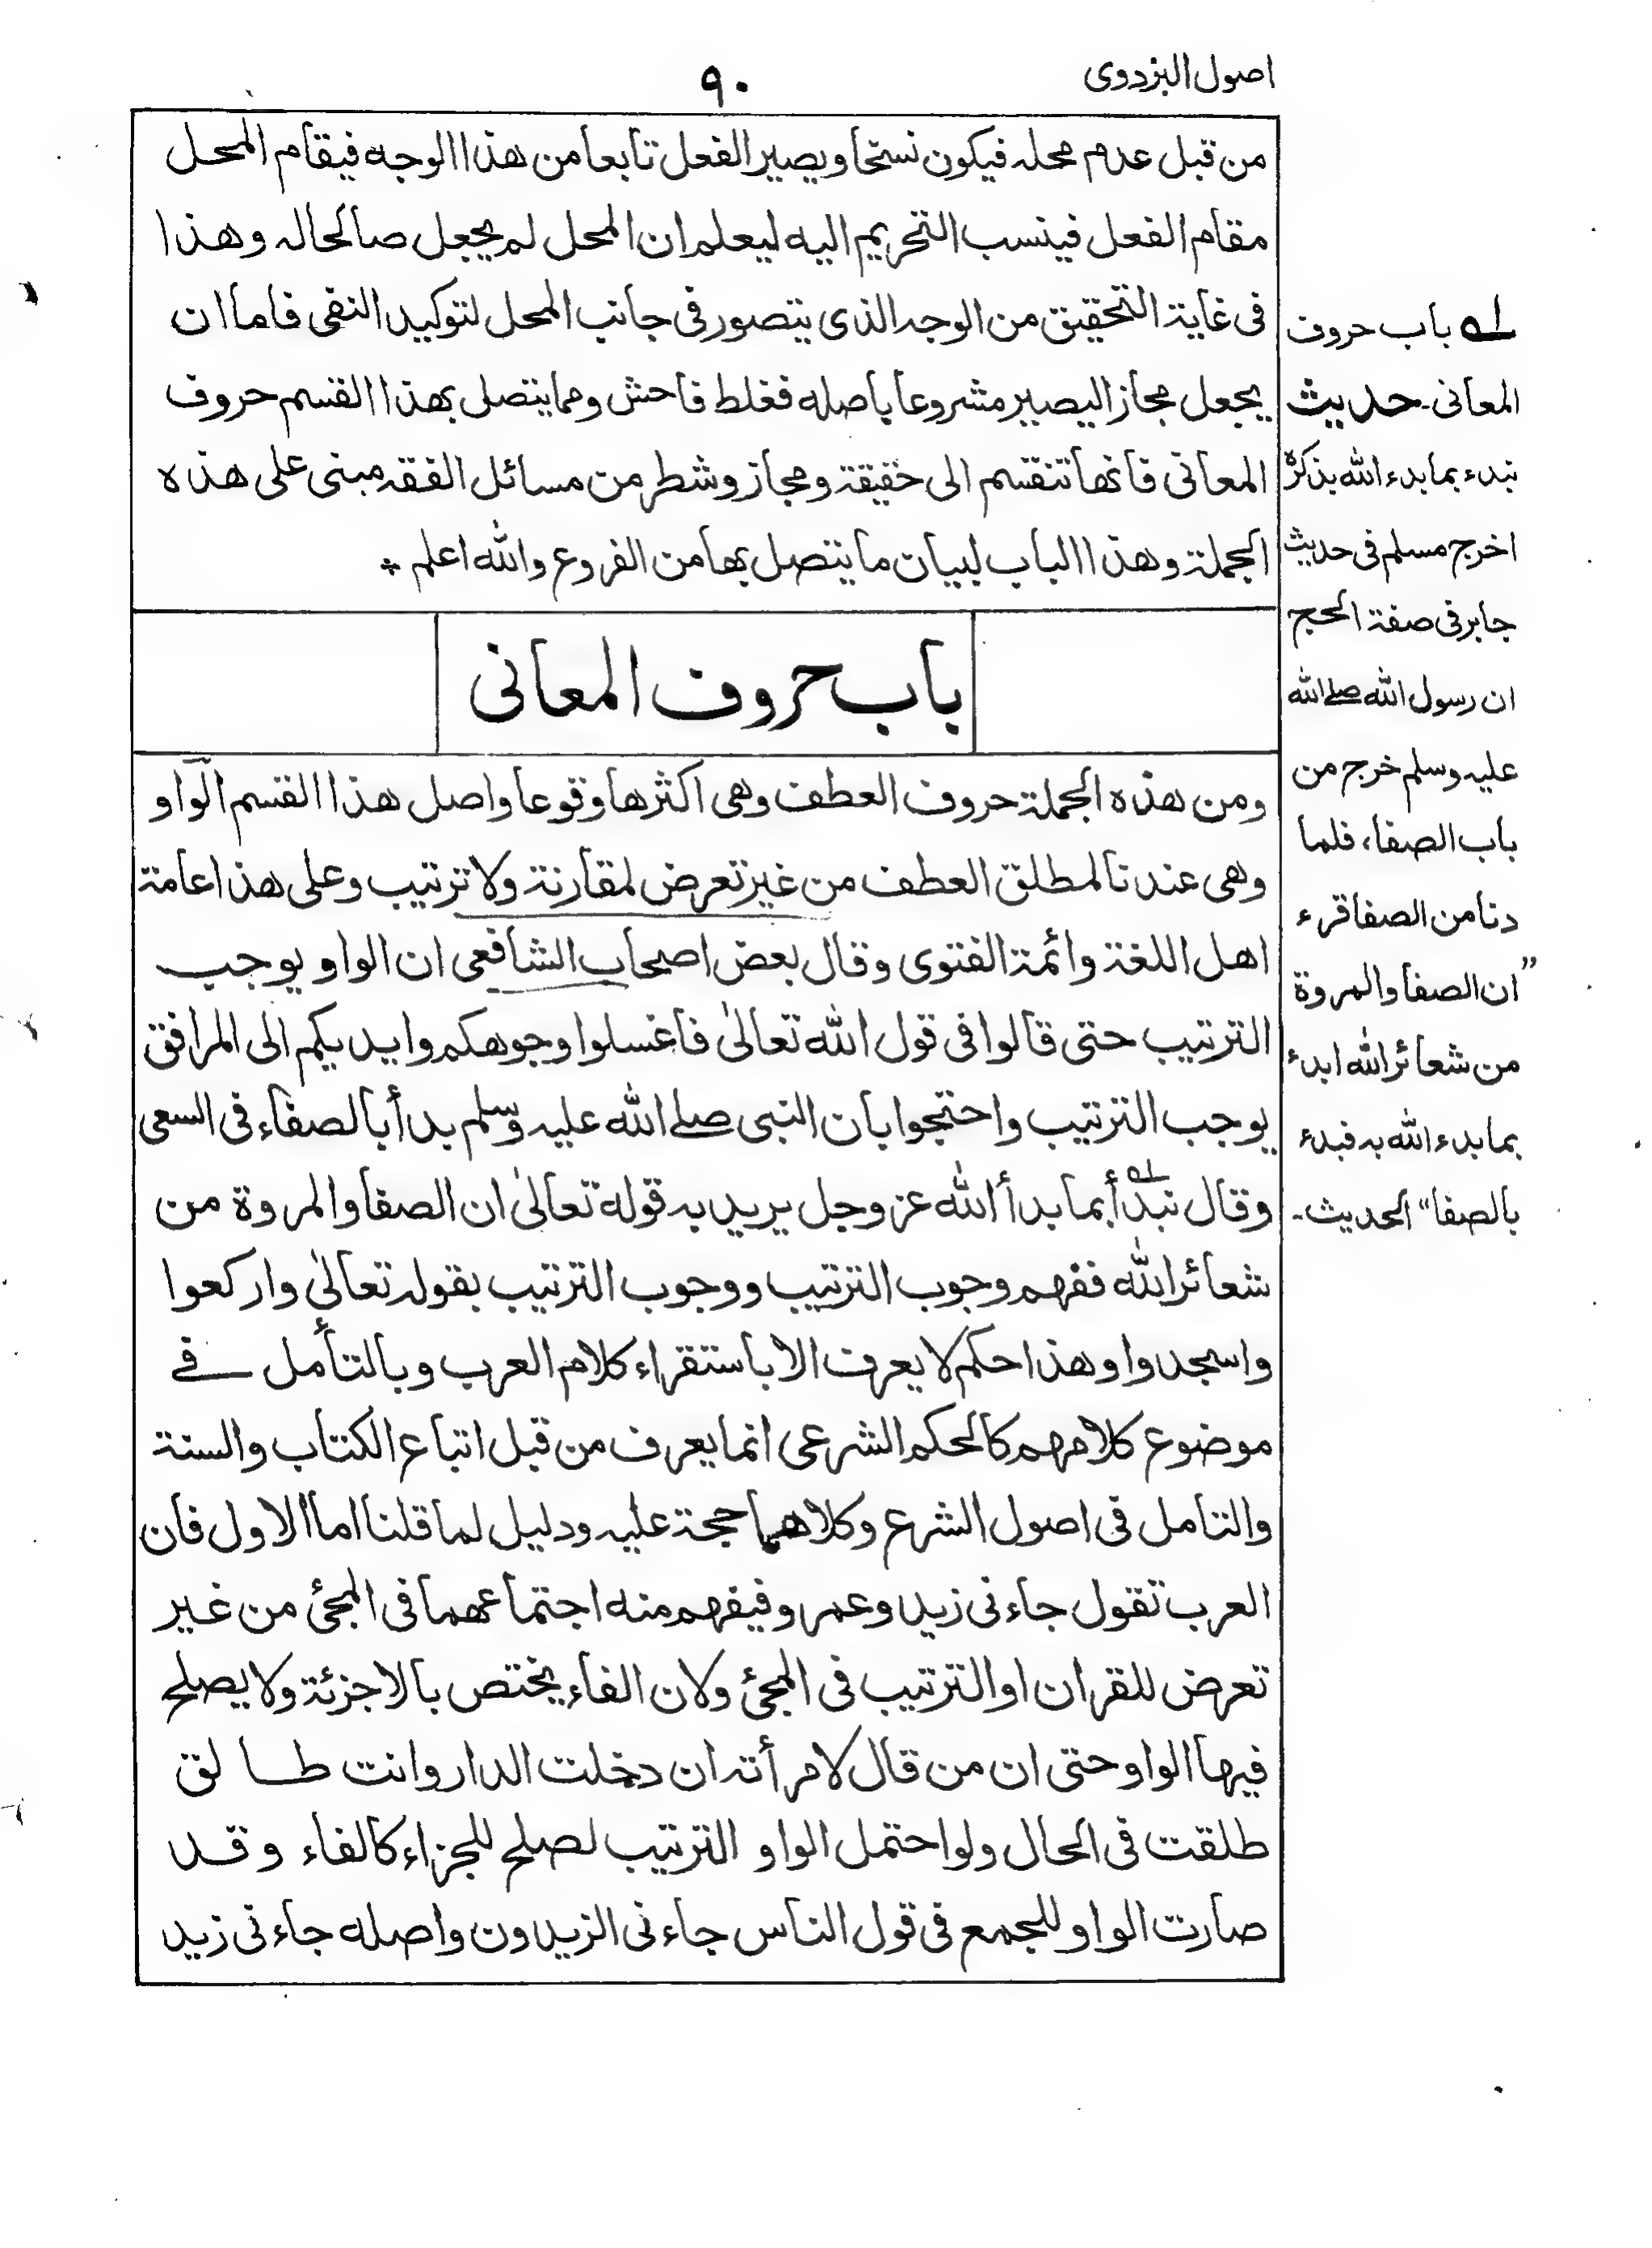 اصول البزدوی
۹۰
من قبل عدم محله فيكون نسخا ويصير الفعل تابعا من هذا الوجه فيقام المحل
مقام الفعل فينسب التحريم اليه ليعلم ان المحل لم يجعل صالحا له وهذا
فى غاية التحقيق من الوجه الذى يتصور فى جانب المحل لتوكيد النفى فاما ان
يجعل مجازا ليصير مشروعا باصله فغلط فاحش ومما يتصل بهذا القسم حروف
المعانى فانها تنقسم الى حقيقة ومجاز وشطر من مسائل الفقه مبنى على هذه
الجملة وهذا الباب لبيان ما يتصل بها من الفروع والله اعلم *
باب حروف المعانى
ومن هذه الجملة حروف العطف وهى اكثرها وقوعا واصل هذا القسم الواو
وهى عندنا لمطلق العطف من غير تعرض لمقارنة ولا ترتيب وعلى هذا عامة
اهل اللغة وائمة الفتوى وقال بعض اصحاب الشافعى ان الواو يوجب
الترتيب حتى قالوا فى قول الله تعالىٰ فاغسلوا وجوهكم وايديكم الى المرافق
يوجب الترتيب واحتجوا بان النبى صلے الله عليه وسلم بدأ بالصفاء فى السعى
وقال نبدأ بما بدأ الله عز وجل يريد به قوله تعالىٰ ان الصفا والمروة من
شعائر الله ففهم وجوب الترتيب ووجوب الترتيب بقوله تعالىٰ واركعوا
واسجدوا وهذا حكم لا يعرف الا باستقراء كلام العرب وبالتأمل فے
موضوع كلامهم كالحكم الشرعى انما يعرف من قبل اتباع الكتاب والسنة
والتامل فى اصول الشرع وكلاهما حجة عليه ودليل لما قلنا اما الاول فان
العرب تقول جاءنى زيد وعمرو فيفهم منه اجتماعهما فى المجئ من غير
تعرض للقران او الترتيب فى المجئ ولان الفاء يختص بالاجزئة ولا يصلح
فيها الواو حتى ان من قال لامرأته ان دخلت الدار وانت طالق
طلقت فى الحال ولو احتمل الواو الترتيب لصلح للجزاء كالفاء وقد
صارت الواو للجمع فى قول الناس جاءنى الزيدون واصله جاءنى زيد
لـه باب حروف
المعانى۔ حديث
نبدء بما بدء الله بذكره
اخرج مسلم فى حديث
جابر فى صفة الحج
ان رسول الله صلے الله
عليه وسلم خرج من
باب الصفا، فلما
دنا من الصفا قرء
”ان الصفا والمروة
من شعائر الله ابدء
بما بدء الله به فبدء
بالصفا“ الحديث۔